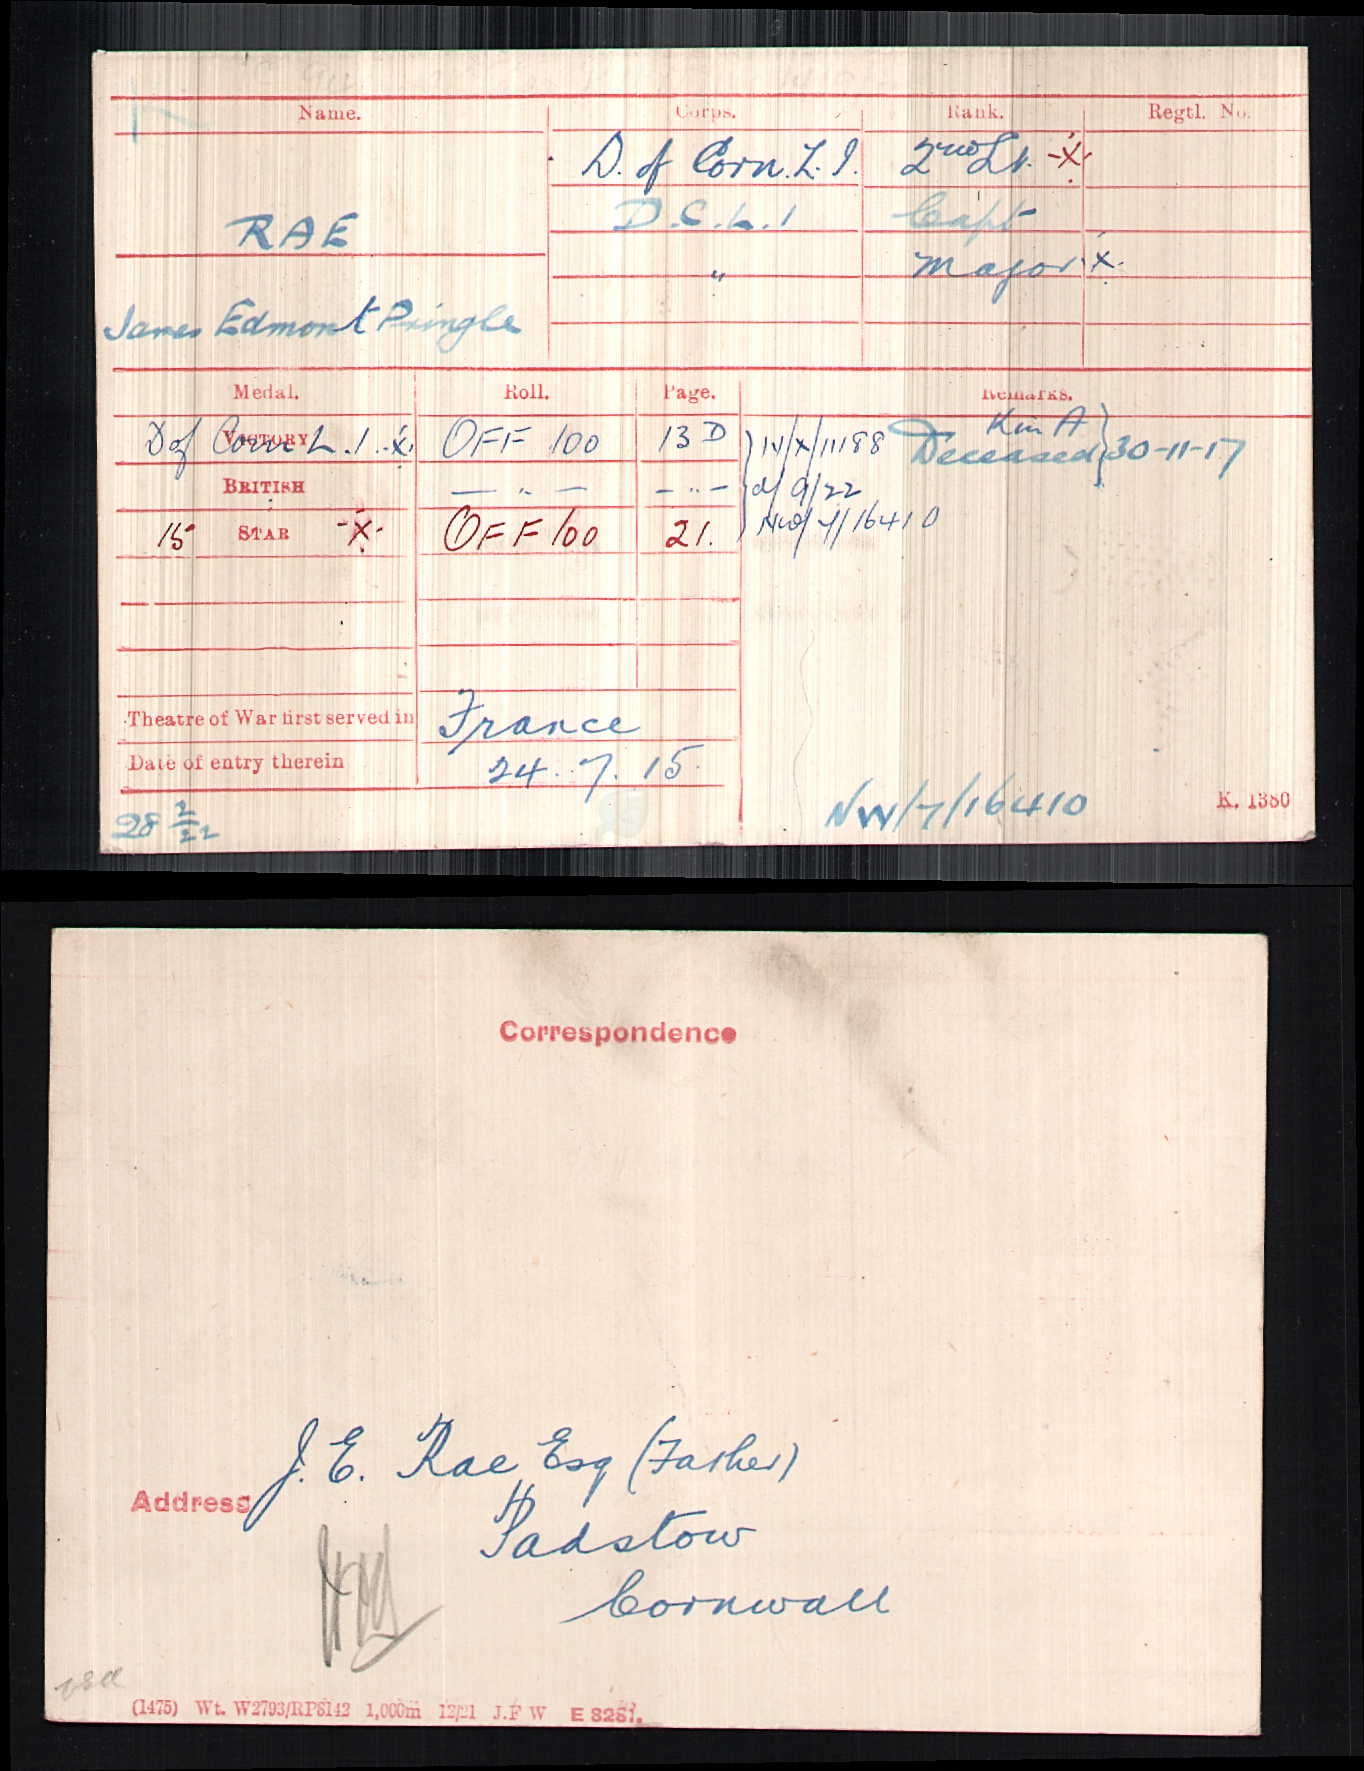 Name. Corps. Rank. Regtl. No.
D. of Corn. L. I. 2nd Lt. -X-
RAE D.C.L.I Capt
" Major X.
James Edmont Pringle
Medal. Roll. Page. Remarks.
VICTORY D of Corn L. I. -X. OFF 100 13 D IV/X/11188 Kin A
Deceased} 30-11-17
BRITISH — " — — " — d/ 9/22
15 STAR -X- OFF 100 21. NW/7/16410
Theatre of War first served in France
Date of entry therein 24. 7. 15.
28 2/22 NW/7/16410 K. 1380
Correspondence
J. E. Rae Esq (Father)
Address
Padstow
Cornwall
(1475) Wt. W2793/RP8142 1,000m 12/21 J.F W E 8281.